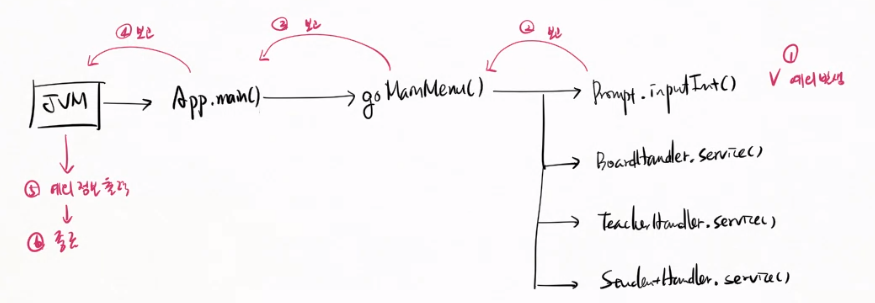 ④ 보고
③ 보고
② 보고
①
에러발생
JVM
App.main()
goMainMenu()
Prompt.inputInt()
BoardHandler.service()
TeacherHandler.service()
StudentHandler.service()
⑤ 에러 정보 출력
⑥ 종료